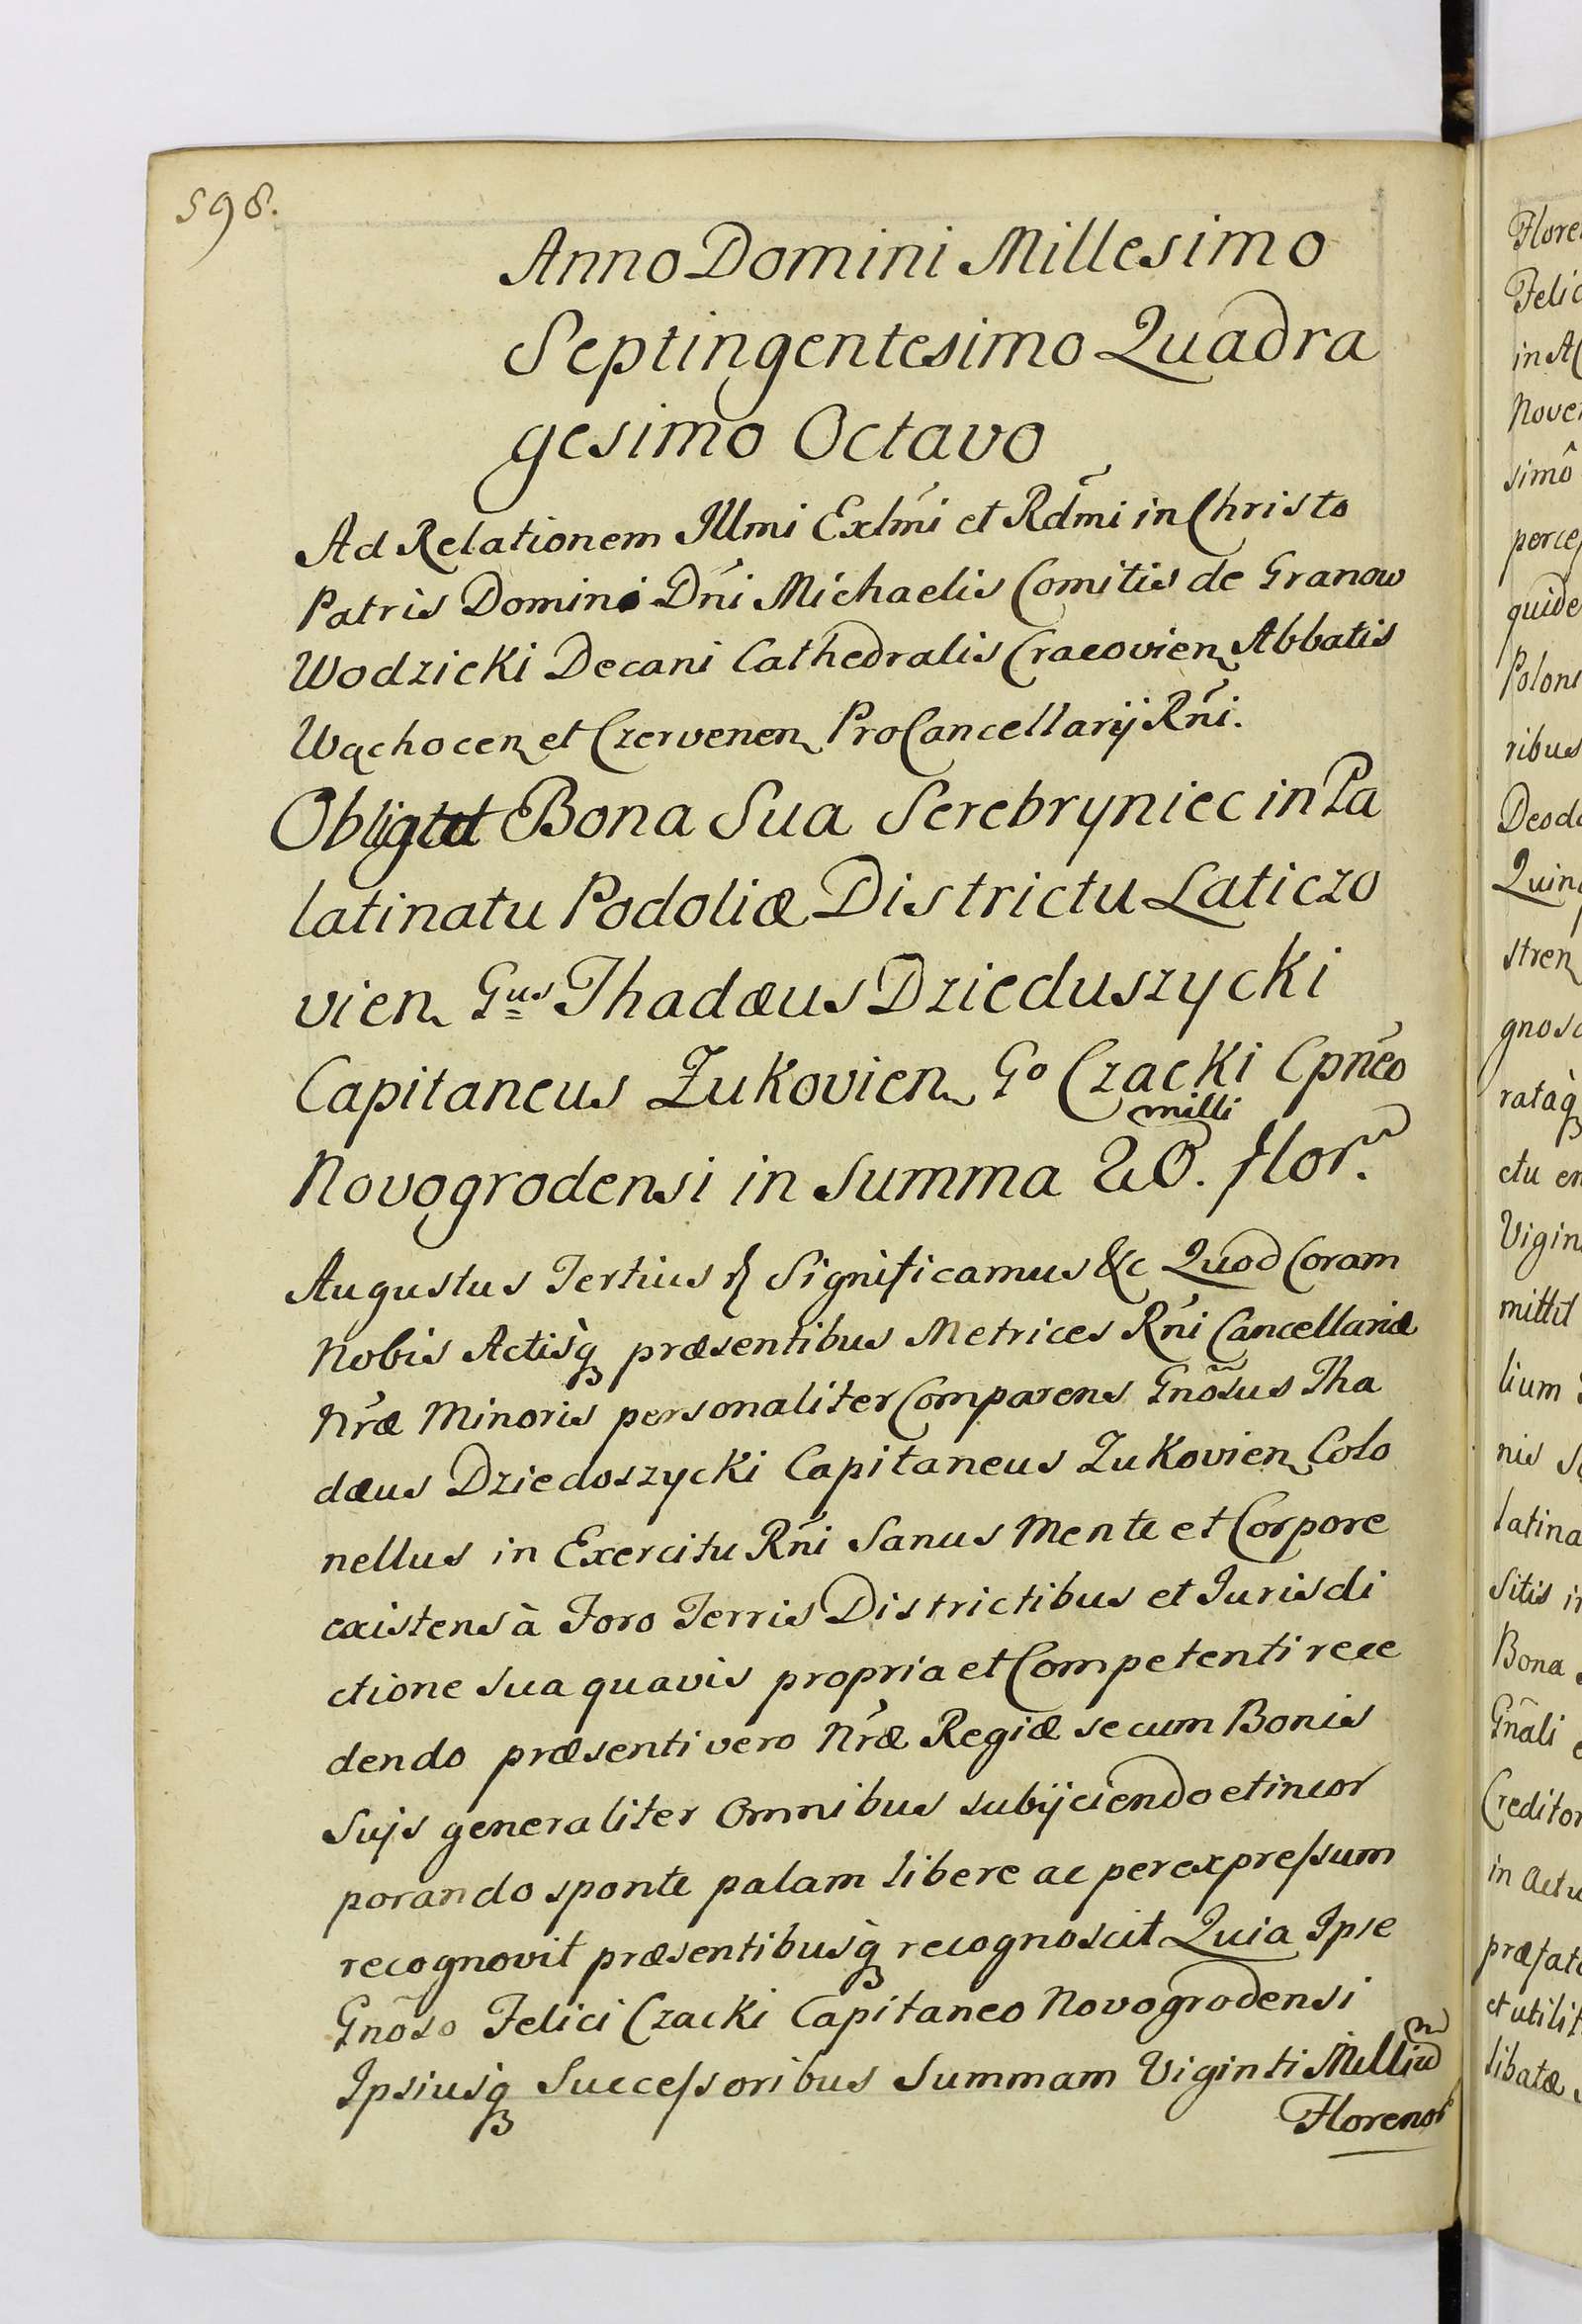 598.
Anno Domini Millesimo
Septingentesimo Quadra
gesimo Octavo
Ad Relationem Illmi Exlm̄i et Rdm̄i in Christo
Patris Domini Dn̄i Michaelis Comitis de Granow
Wodzicki Decani Cathedralis Cracovien Abbatis
Wąchocen et Czervenen ProCancellarij Rn̄i.
Obligat Bona Sua Serebryniec in Pa
latinatu Podoliæ Districtu Laticzo
vien Gus Thadæus Dzieduszycki
Capitaneus Zukovien Go Czacki Cpn̄eo
milli
Novogrodensi in Summa 20. flor.
Augustus Tertius Significamus &c Quod Coram
Nobis Actisq præsentibus Metrices Rn̄i Cancellariæ
Nr̄æ Minoris personaliter Comparens Gnōsus Tha
dæus Dziedoszycki Capitaneus Zukovien Colo
nellus in Exercitu Rn̄i Sanus Mente et Corpore
existens à Foro Terris Districtibus et Iurisdi
ctione sua quavis propria et Competenti rece
dendo præsenti vero Nr̄æ Regiæ se cum Bonis
Suis generaliter Omnibus subijciendo et incor
porando sponte palam libere ac per expressum
recognovit præsentibusq̀ recognoscit Quia Ipse
Gnōso Felici Czacki Capitaneo Novogrodensi
Ipsiusq Successoribus Summam Viginti Milliū
Florenor
Flore
Felic
in A
Nove
simô
perce
quide
Polon
ribus
Deod
Quin
stren
gnos
rataq̀
ctu en
Vigin
mittit
lium
nis
latina
Sitis i
Bona
Gnāli
Creditor
in actu
præfat
et utilit
libatæ